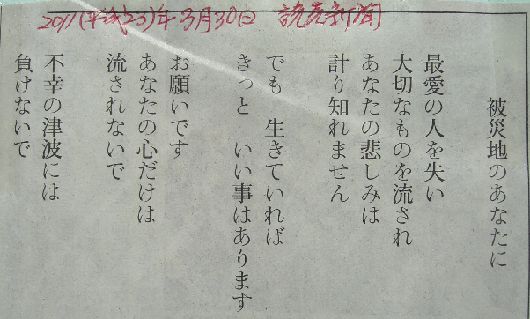 2011(平成23)年3月30日 読売新聞
被災地のあなたに
最愛の人を失い
大切なものを流され
あなたの悲しみは
計り知れません
でも 生きていれば
きっと いい事はあります
お願いです
あなたの心だけは
流されないで
不幸の津波には
負けないで